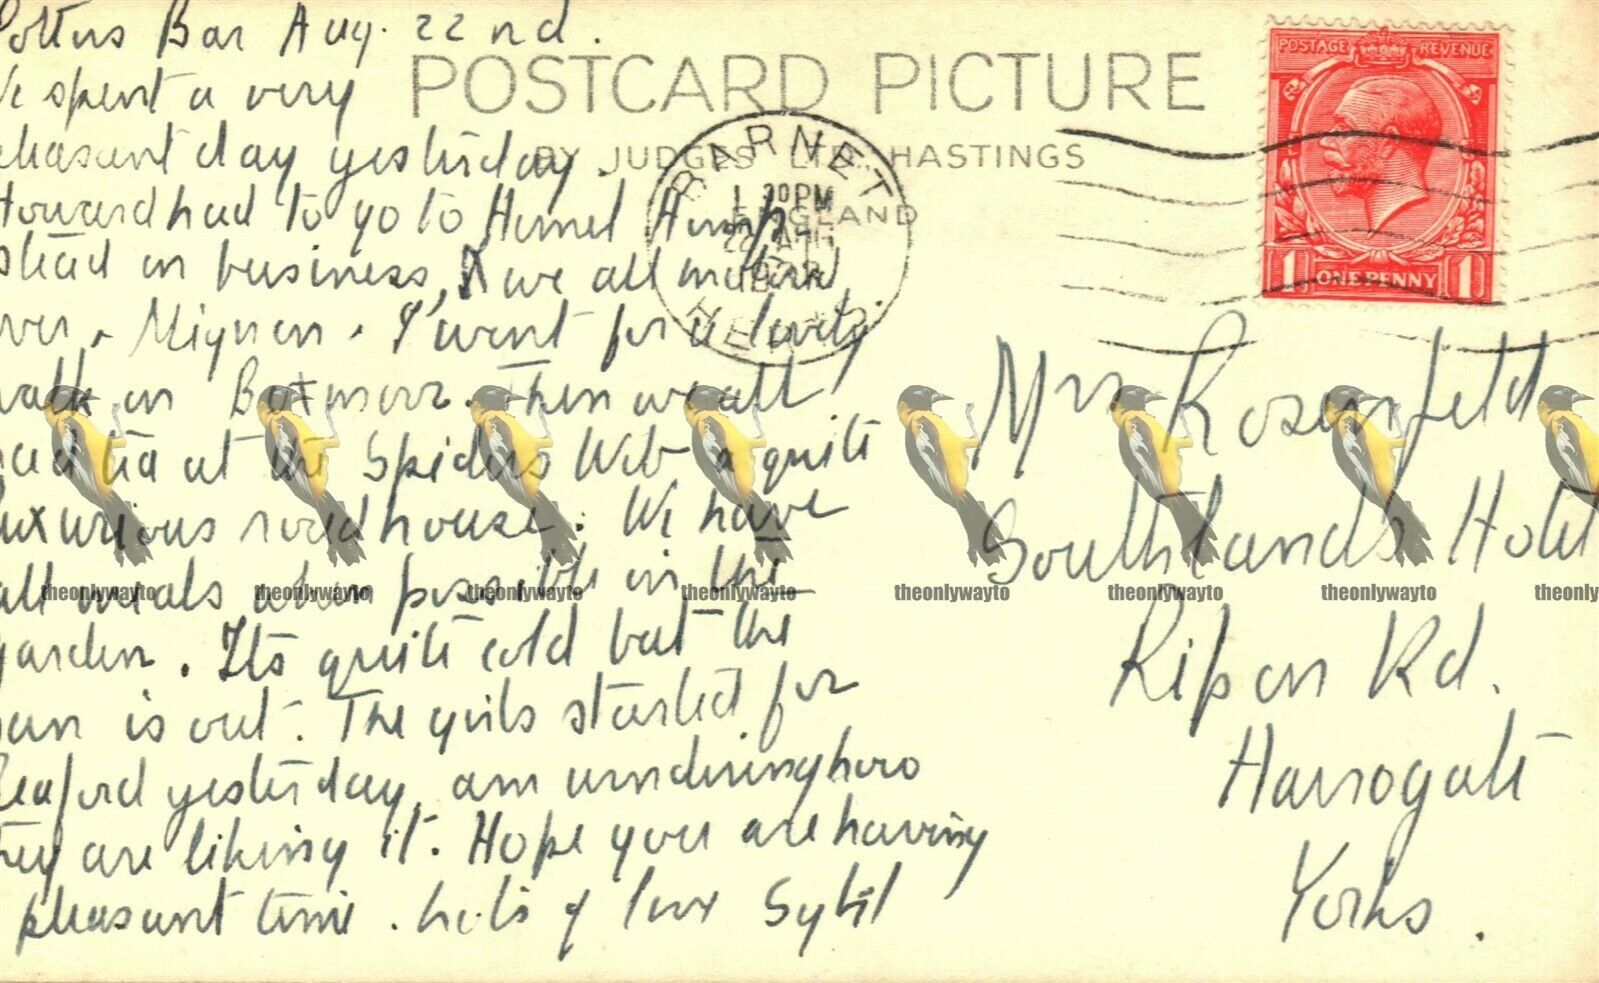 Potters Bar Aug. 22nd.
We spent a very
pleasant day yesterday.
Howard had to go to Hemel Hemp-
stead on business, & we all motored
over. Mignon & I went for a lovely
walk on Boxmoor. Then we all
had tea at the Spiders Web a quite
luxurious roadhouse. We have
all meals when possible in the
garden. Its quite cold but the
sun is out. The girls started for
Seaford yesterday, am wondering how
they are liking it. Hope you are having
a pleasant time. Lots of love Sybil
POSTCARD PICTURE
BY JUDGES LTD. HASTINGS
ENGLAND
BARNET
1 30PM
22 AUG
HERTS.
POSTAGE REVENUE
1 ONE PENNY 1
Mrs Rosenfeld
Southlands Hotel
Ripon Rd.
Harrogate
Yorks.
theonlywayto theonlywayto theonlywayto theonlywayto theonlywayto theonlywayto theonlywayto theonly